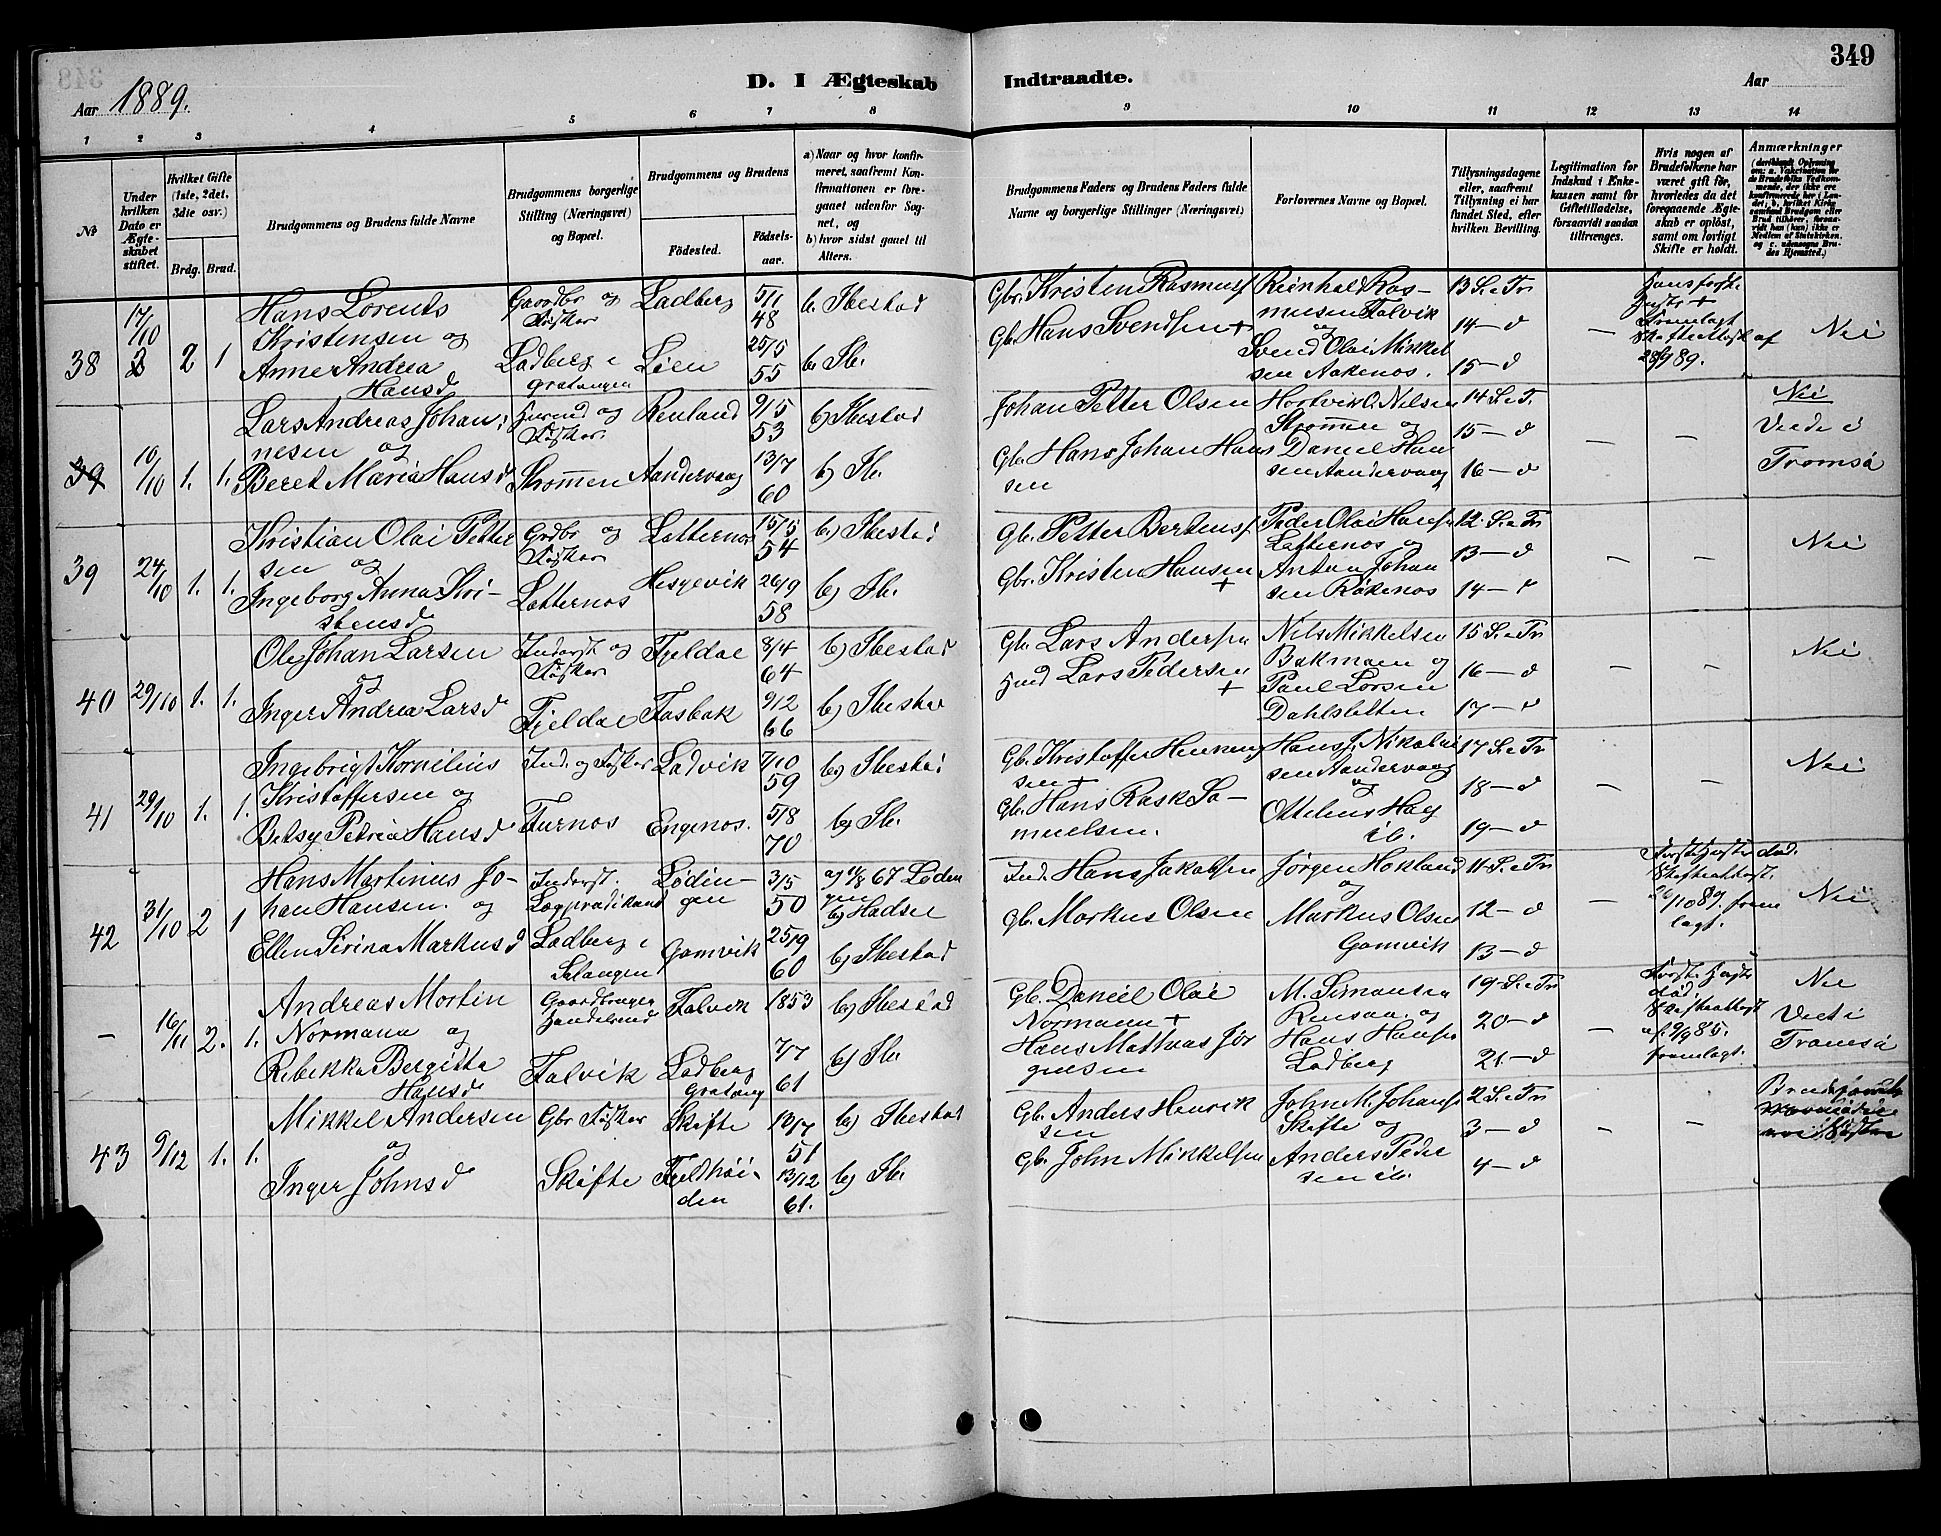 349
Aar 1889.
D. I Ægteskab Indtraadte.
Aar
1 2 3 4 5 6 7 8 9 10 11 12 13 14
No
Under hvilken Dato er Ægteskabet stiftet.
Hvilket Gifte (1ste, 2det, 3die osv.)
Brdg. Brud.
Brudgommens og Brudens fulde Navne
Brudgommens borgerlige Stilling (Næringsvei) og Bopæl.
Brudgommens og Brudens
Fødested.
Fødselsaar.
a) Naar og hvor konfirmeret, saafremt Konfirmationen er foregaaet udenfor Sognet, og
b) hvor sidst gaaet til Alters.
Brudgommens Faders og Brudens Faders fulde Navne og borgerlige Stillinger (Næringsvei)
Forlovernes Navne og Bopæl.
Tillysningsdagene eller, saafremt Tillysning ei har fundet Sted, efter hvilken Bevilling.
Legitimation for Indskud i Enkekassen samt for Giftetilladelse, forsaavidt saadan tiltrænges.
Hvis nogen af Brudefolkene har været gift før, hvorledes da det foregaaende Ægteskab er opløst, samt om lovligt Skifte er holdt.
Anmærkninger
38 17/10 2 1
Hans Lorents
Kristensen og
Anne Andrea
Hansd
Gaardbr og
Fisker
Ladberg i
Gratangen
Ladberg 5/1 48
Lien 25/5 55
b. Ibestad
b. Ib.
Gbr. Kristen Rasmuss
Gb. Hans Svendsen +
Reinholt Ras-
musen Folvik
og
Svend Olai Mikkel
sen Aakenos.
13 S. e Tr
14 - d
15 - d
-
Hans forste
Hustr +
Fremlagt
Skifteattest af
28/9 89.
Nei
39 16/10 1. 1.
Lars Andreas Johan-
nesen og
Beret Maria Hansd
Husmd og
Fisker
Strømmen
Renland 9/5 53
Aandervaag 13/7 60
b) Ibestad
b) Ib.
Johan Petter Olsen
Gb. Hans Johan Hans
sen
Hartvik C. Nilsen
Strømmen og
Daniel Han
sen Aandervaag
14 S. e T.
15 - d
16 - d
- -
Nei
Viede i
Tromsø
39 24/10 1. 1.
Kristian Olai Petter
sen og
Ingeborg Anna Kri-
stensd
Grdbr og
Fisker
Latternos
Latternos 15/5 54
Hesjevik 26/9 58
b) Ibestad
b) Ib.
Gb. Petter Berteuss
Gbr. Kristen Hansen
+
Peder Olai Hans
Latternos og
Anton Johan
sen Røkenos
12. S. e Tr
13 - d
14 - d
- -
Nei
40 29/10 1. 1.
Ole Johan Larsen
og
Inger Andrea Larsd
Inderst og
Fisker
Fjeldal
Fjeldal 8/4 64
Fosbak 9/12 66
b) Ibestad
b) Ibestad
Gb. Lars Andersen
Hmd Lars Pedersen
+
Nils Mikkelsen
Bakmoen og
Paul Larsen
Dahlsletten
15 S. e Tr
16 - d
17 - d
- -
Nei
41 29/10 1. 1.
Ingebrigt Kornilius
Kristoffersen og
Betsy Petrea Hansd
Ind. og Fisker
Furnos
Ladvik 7/10 59
Engenos. 5/8 70
b) Ibestad
b) Ib.
Gb. Kristoffer Henning
sen +
Gb. Hans Rask Sa-
muelsen.
Hans J. Nikolai
sen Aandervaag
og
Ottelius Hag
ib.
17 S. e Tr
18 - d
19 - d
- -
Nei
42 31/10 2 1
Hans Martinus Jo-
han Hansen. og
Ellen Sirina Markusd
Inderst.
Lægprædikant
Ladberg i
Salangen
Lødin-
gen 3/5 50
Gamvik 25/9 60
a) 67 Løden
gen
b) Hadsel
b) Ibestad
Ind. Hans Jakobsen
Gb. Markus Olsen
Jørgen Hokland
og
Markus Olsen
Gamvik
11 S. e Tr
12 - d
13 - d
-
Forste Hustr død.
Skifteattest.
10 89 frem
lagt.
Nei
- 16/11 2. 1.
Andreas Mortin
Normann og
Rebekka Bergitta
Hansd
Gaardbruger
Handelsmd
Folvik
Folvik 1853
Ladberg
Gratang 7/7 61
b) Ibestad
b) Ib.
Gb. Daniel Olai
Normann +
Hans Mathias Jør
gensen
M. Simonsen
Rensaa. og
Hans Hans
Ladberg
19 S. e Tr
20 - d
21 - d
-
Forste Hustr
død.
Skifteattest
af 9/9 85.
fremlagt.
Nei
Viet i
Tromsø
43 9/12 1. 1.
Mikkel Andersen
og
Inger Johnsd
Gbr Fisker
Skifte
Skifte 12/7 51
Fjeldhøi-
den 13/12 61.
b) Ibestad
b) Ib.
Gb. Anders Henrik
sen
Gb. John Mikkelsen
John M. Johans
Skifte og
Anders Peder
sen ib.
2 S. e Tr
3 - d
4 - d
- -